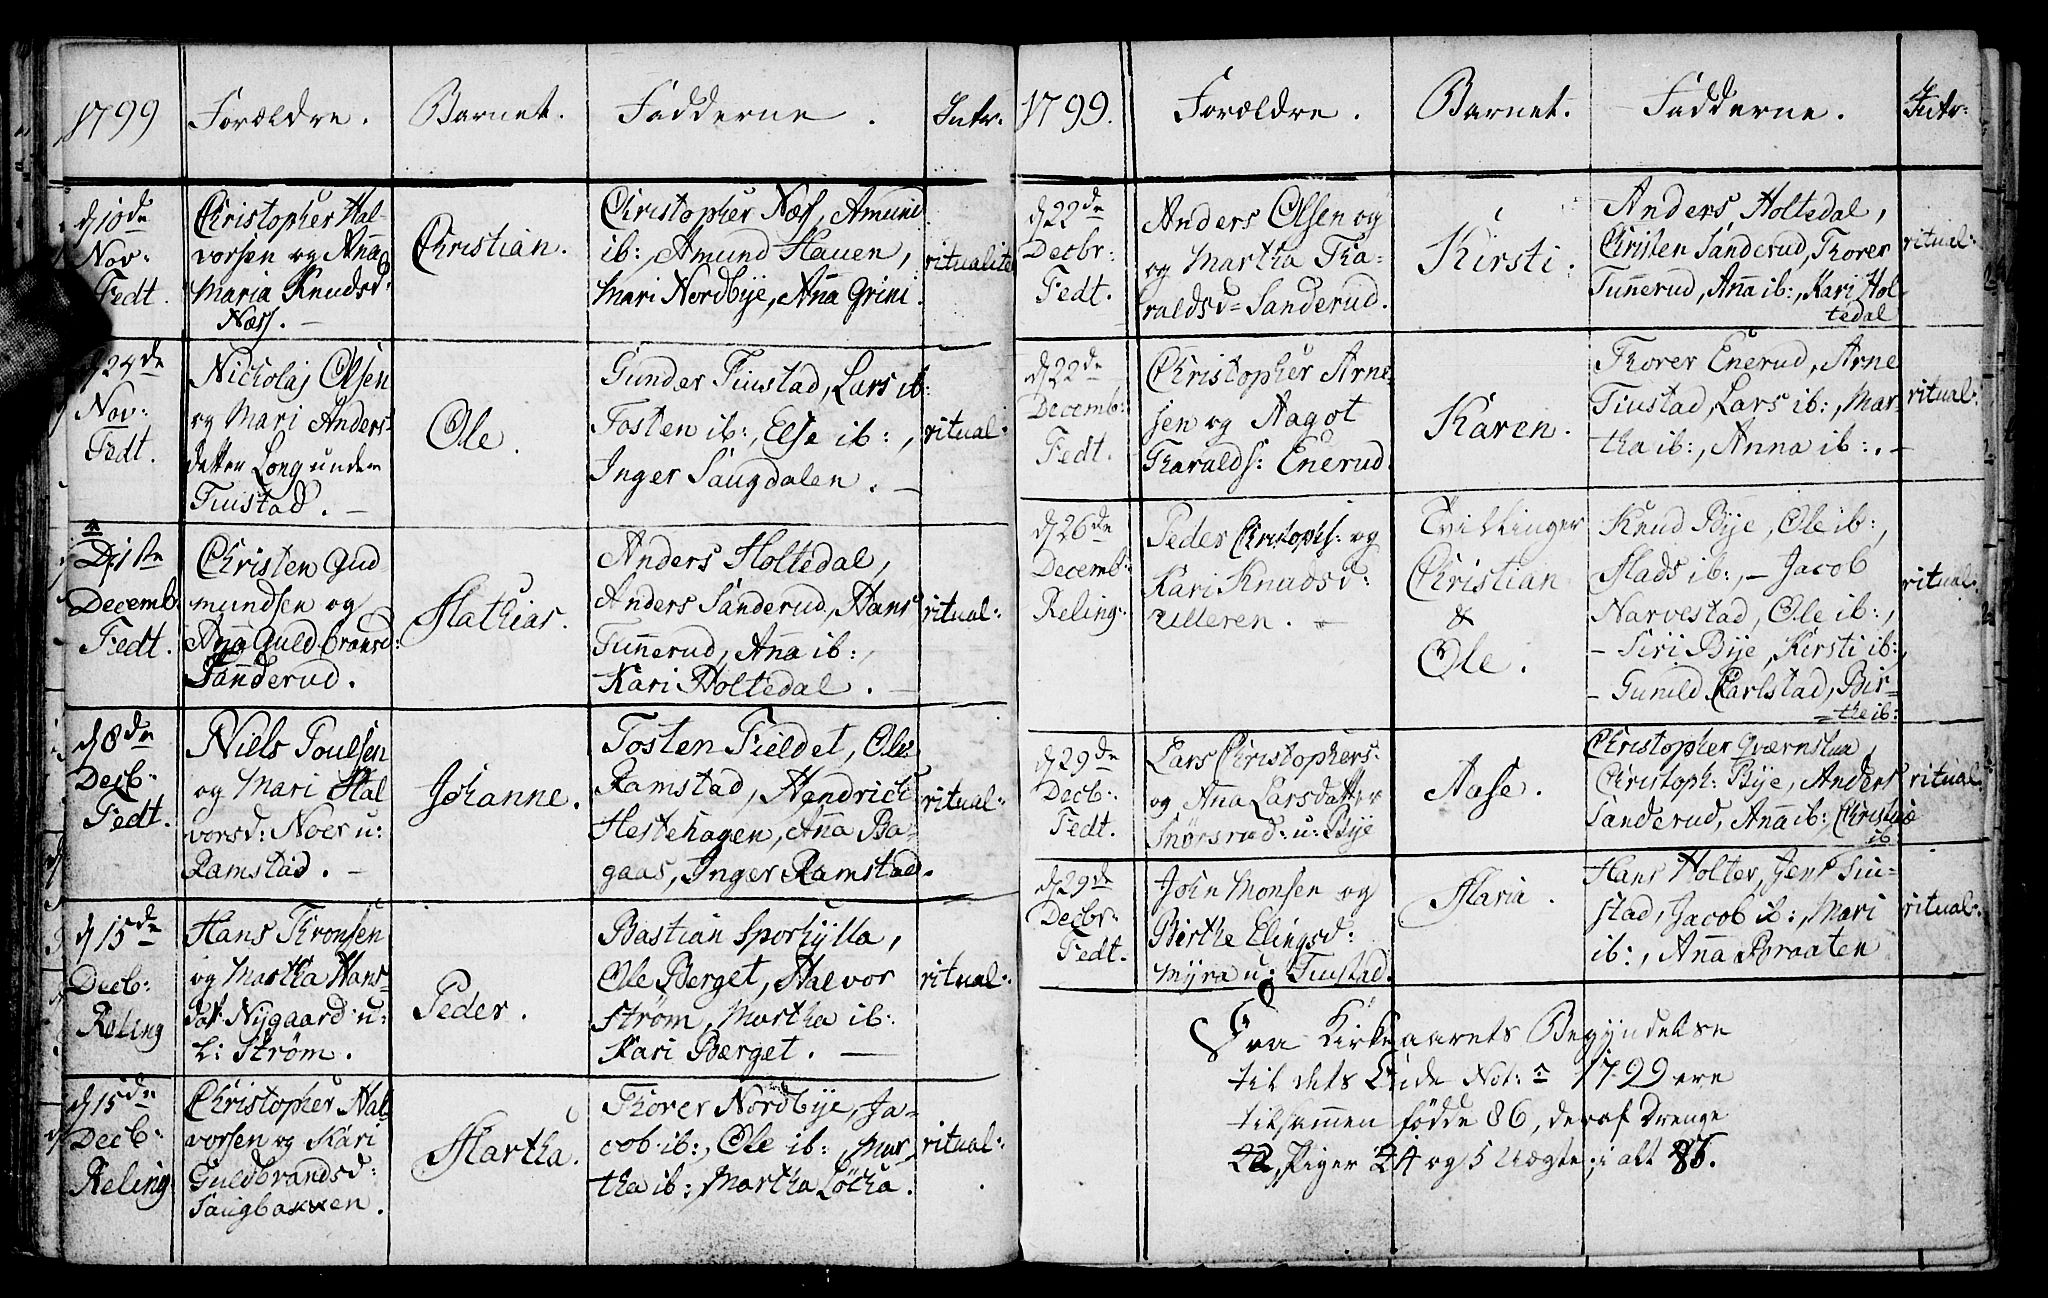 1799
Forældre.
Barnet.
Fadderne.
Intr.
d 10de
Nov:
Fedt.
Christopher Hal-
vorsen og Anna
Maria Knudsd:
Næss.
Christian.
Christopher Næss, Amund
ib:, Amund Hauen,
Mari Nordbye, Anna Grini.
ritualiter
d 24de
Nov:
Fedt.
Nickolaj Olsen
og Mari Anders-
datter Long under
Tiustad.
Ole.
Gunder Tiustad, Lars ib:
Tosten ib:, Else ib:,
Inger Saugdalen.
ritual:
D 1ste
Decemb:
Fedt.
Christen Gud
mundsen og
Anna Guldbransd:
Sanderud.
Mathias.
Anders Holtedal,
Anders Sanderud, Hans
Tunnerud, Anna ib:,
Kari Holtedal.
ritual:
d 8de
Decb:
Fedt.
Niels Poulsen
og Mari Hal
vorsd: Noer u:
Ramstad.
Johanne.
Tosten Fieldet, Ole
Ramstad, Hendrich
Hestehagen, Anna Ba-
gaas, Inger Ramstad.
ritual:
d 15de
Decb:
Reling
Hans Thronsen
og Martha Hans-
dat: Nygaard u:
L: Strøm.
Peder.
Bastian Sporhylla,
Ole Berget, Halvor
Strøm, Martha ib:
Kari Berget.
ritual:
d 15de
Decb:
Reling
Christopher Hal-
vorsen og Kari
Guldbrandsd:
Saugbakken.
Martha.
Thorer Nordbye, Ja-
cob ib:, Ole ib: Mar-
tha ib: Martha Løcka.
ritual:
1799.
Forældre.
Barnet.
Fadderne.
Intr:
d 22de
Decbr:
Fedt.
Anders Olsen og
og Martha Tha-
raldsd= Sanderud.
Kirsti.
Anders Holtedal,
Christen Sanderud, Thorer
Tunnerud, Anna ib:, Kari Hol-
tedal
ritual:
d 22de
Decemb:
Fedt.
Christopher Arne-
sen og Aagot
Tharalds: Enerud.
Karen.
Thorer Enerud, Arne
Tiustad, Lars ib:, Mar-
tha ib:, Anna ib:.
ritual:
d 26de
Decemb:
Reling:
Peder Christoph: og
Kari Knudsd:
Ulleren.
Tvillinger
Christian
&
Ole.
Knud Bye, Ole ib:,
Mads ib:, - Jacob
Narvestad, Ole ib:,
- Siri Bye, Kirsti ib:,
- Gunild Karlstad, Bir-
the ib:
ritual:
d 29de
Decb:
Fedt.
Lars Christophers:
og Anna Larsdatter
Snørsrud: u: Bye
Aase.
Christopher Qværnstua,
Christoph: Bye, Anders
Sanderud, Anna ib:, Christine
ib:
ritual:
d 29de
Decbr:
Fedt.
John Monsen og
Birthe Elingsd:
Myra u: Tiustad.
Maria.
Hans Holter, Jens Tiu-
stad, Jacob ib:, Mari
ib:, Anna Braaten
ritual:
Fra Kirkeaarets Begyndelse
til dets Ende Not: 1799 ere
tilsammen fødde 86, deraf Drenge
42, Piger 44 og 5 Uægte; i alt 86.